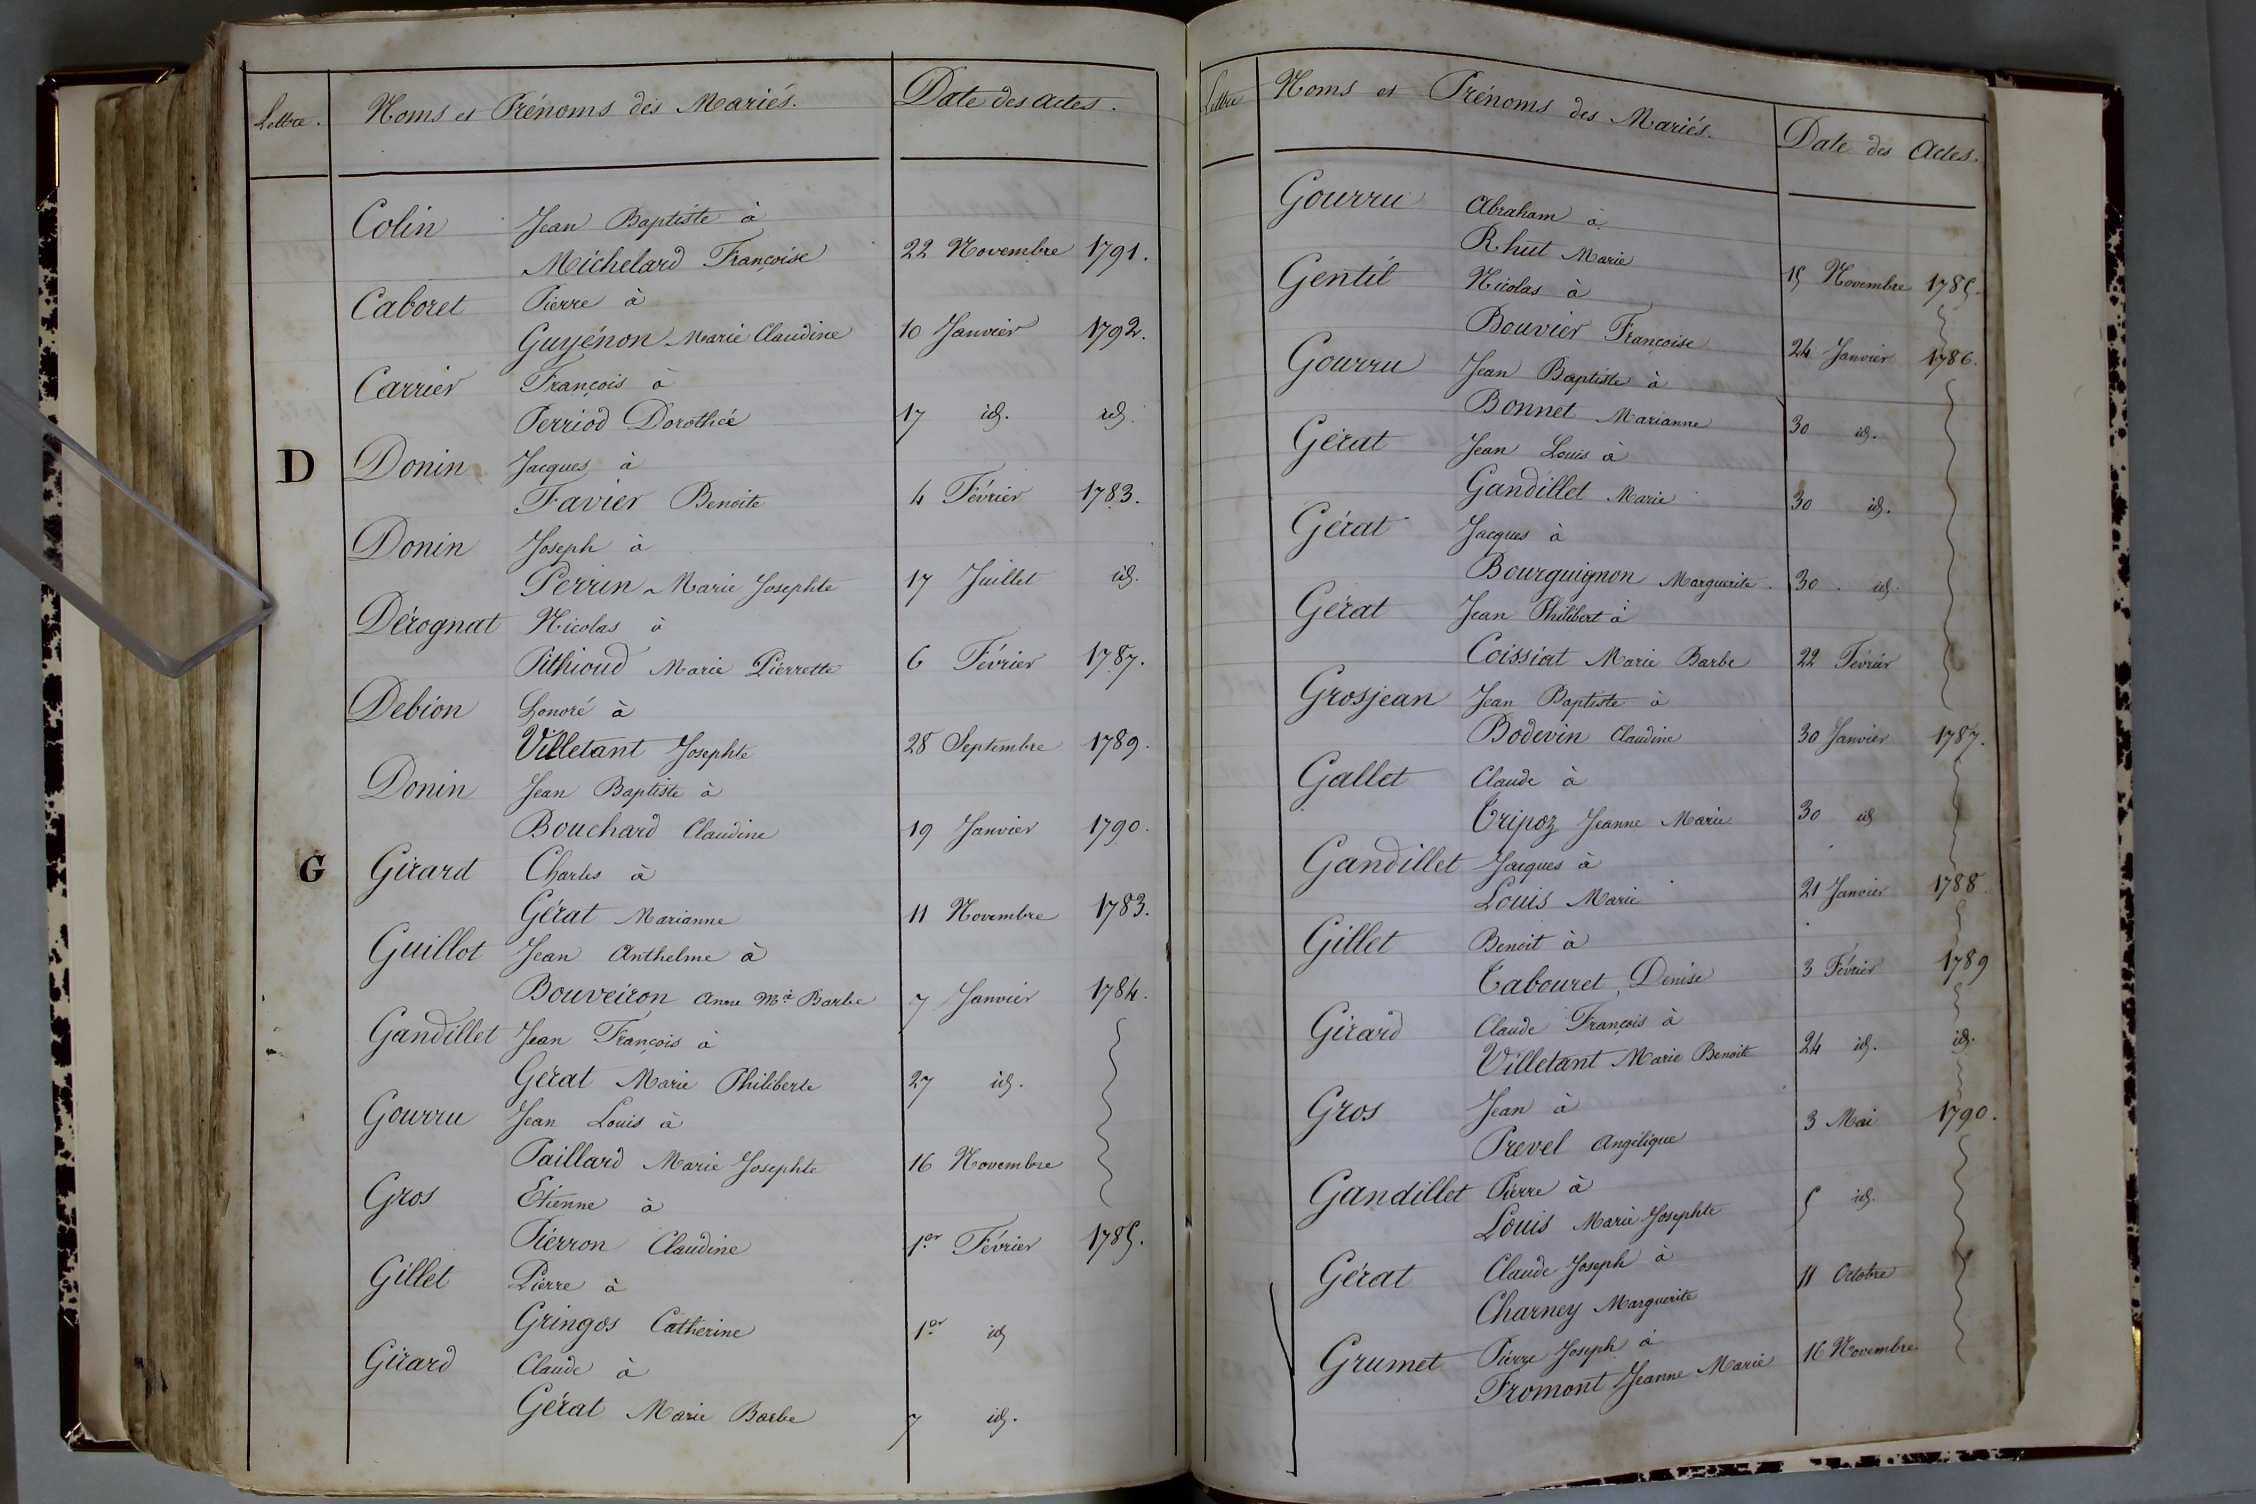 Lettre. Noms et Prénoms des Mariés. Date des actes.
Colin Jean Baptiste à
Michelard Françoise 22 Novembre 1791.
Caboret Pierre à
Guyénon Marie Claudine 10 Janvier 1792.
Carrier François à
Perriod Dorothée 17 id. id.
D Donin Jacques à
Favier Benoite 4 Février 1783.
Donin Joseph à
Perrin Marie Josephte 17 Juillet id.
Dérognat Nicolas à
Pithioud Marie Pierrette 6 Février 1787.
Debion honoré à
Villetant Josephte 28 Septembre 1789.
Donin Jean Baptiste à
Bouchard Claudine 19 Janvier 1790.
G Girard Charles à
Gérat Marianne 11 Novembre 1783.
Guillot Jean Anthelme à
Bouveiron Anne Mie Barbe 7 Janvier 1784.
Gandillet Jean François à
Gérat Marie Philiberte 27 id.
Gourru Jean Louis à
Paillard Marie Josephte 16 Novembre
Gros Etienne à
Pierron Claudine 1er Février 1785.
Gillet Pierre à
Gringos Catherine 1er id
Girard Claude à
Gérat Marie Barbe 7 id.
Lettre Noms et Prénoms des Mariés. Date des Actes.
Gourru Abraham à
Rhut Marie 15 Novembre 1785.
Gentil Nicolas à
Bouvier Françoise 24 Janvier 1786.
Gourru Jean Baptiste à
Bonnet Marianne 30 id.
Gérat Jean Louis à
Gandillet Marie 30 id.
Gérat Jacques à
Bourguignon Marguerite. 30. id.
Gérat Jean Philibert à
Coissiat Marie Barbe 22 Février
Grosjean Jean Baptiste à
Bodevin Claudine 30 Janvier 1787.
Gallet Claude à
Tripoz Jeanne Marie 30 id
Gandillet Jacques à
Louis Marie 21 Janvier 1788.
Gillet Benoit à
Tabouret Denise 3 Février 1789
Girard Claude François à
Villetant Marie Benoite 24 id. id.
Gros Jean à
Prevel Angélique 3 Mai 1790.
Gandillet Pierre à
Louis Marie Josephte 5 id.
Gérat Claude Joseph à
Charney Marguerite 11 Octobre
Grumet Pierre Joseph à
Fromont Jeanne Marie 16 Novembre